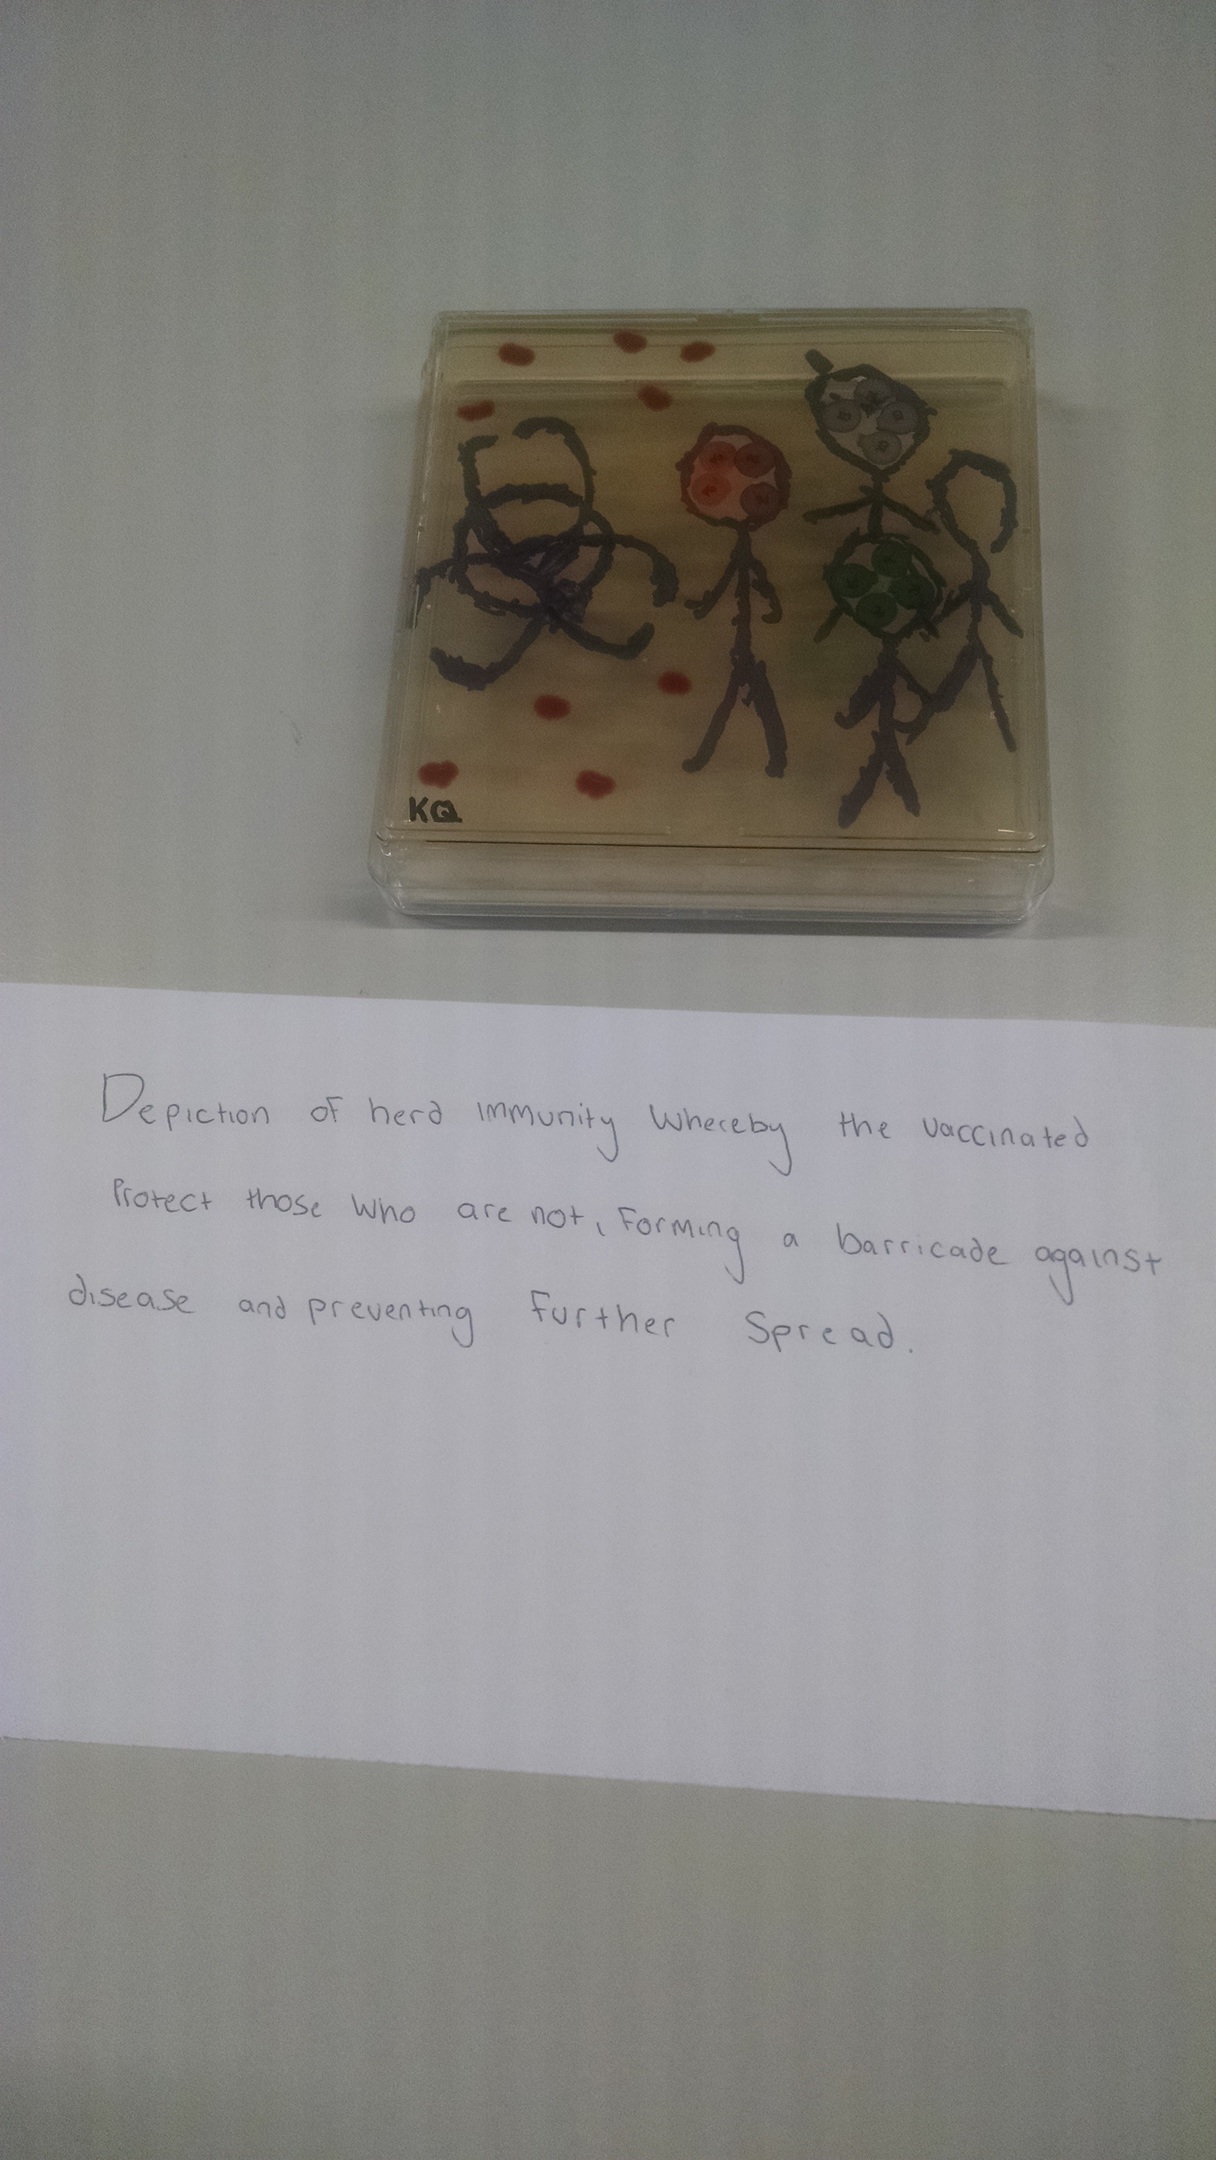 KQ
Depiction of herd immunity whereby the vaccinated
Protect those who are not, Forming a barricade against
disease and preventing Further Spread.